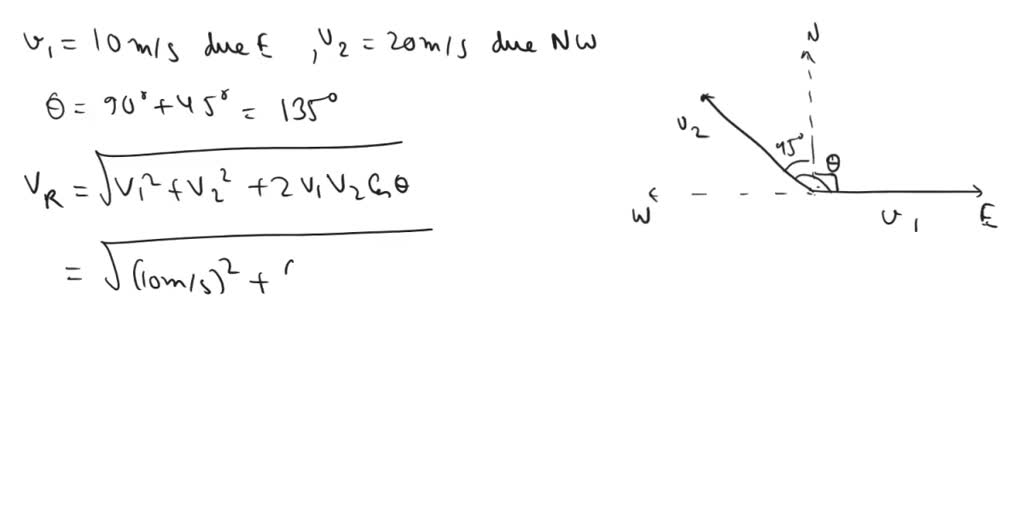 v₁ = 10 m/s due E , v₂ = 20 m/s due NW
θ = 90° + 45° = 135°
V_R = √V₁² + V₂² + 2 V₁ V₂ Cos θ
= √(10m/s)² + (
N
v₂
45°
θ
W
v₁
E